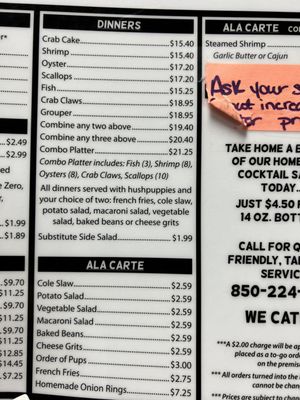 DINNERS
Crab Cake $15.40
Shrimp $15.40
Oyster $17.20
Scallops $17.20
Fish $15.25
Crab Claws $18.95
Grouper $18.95
Combine any two above $19.40
Combine any three above $20.40
Combo Platter $21.25
Combo Platter includes: Fish (3), Shrimp (8),
Oysters (8), Crab Claws, Scallops (10)
All dinners served with hushpuppies and
your choice of two: french fries, cole slaw,
potato salad, macaroni salad, vegetable
salad, baked beans or cheese grits
Substitute Side Salad $1.99
ALA CARTE
Cole Slaw $2.59
Potato Salad $2.59
Vegetable Salad $2.59
Macaroni Salad $2.59
Baked Beans $2.59
Cheese Grits $2.59
Order of Pups $3.00
French Fries $2.75
Homemade Onion Rings $7.25
$2.49
$2.99
Zero,
$1.99
$1.89
$9.70
$11.25
$11.25
$9.70
$11.25
$12.85
$14.45
$7.25
ALA CARTE
Steamed Shrimp
Garlic Butter or Cajun
Ask your
TAKE HOME A
OF OUR HOME
COCKTAIL SA
TODAY...
JUST $4.50 F
14 OZ. BOTT
CALL FOR
FRIENDLY, TA
SERVIC
850-224-
WE CAT
***A $2.00 charge will be ap
placed as a to-go order
on the premise
*** All orders turned into the
cannot be chan
*** Prices are subject to chan